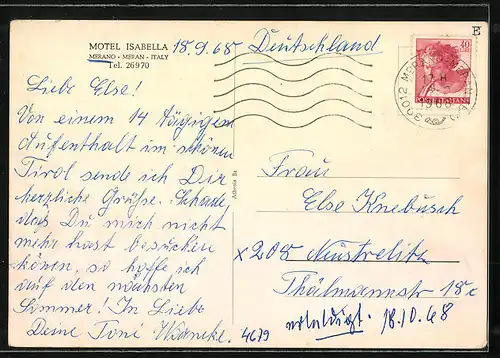 MOTEL ISABELLA
MERANO - MERAN - ITALY
Tel. 26970
18.9.68
Deutschland
E
40
POSTE ITALIANE
39012 MERANO
Liebe Else!
Von einem 14 tägigen
Aufenthalt im schönen
Tirol sende ich Dir
herzliche Grüße. Schade
daß Du mich nicht
mehr hast besuchen
können, so hoffe ich
auf den nächsten
Sommer! In Liebe
Deine Toni Wancke.
4679
Frau
Else Knebusch
x 208 Neustrelitz
Thälmannstr 18c
erledigt. 18.10.68